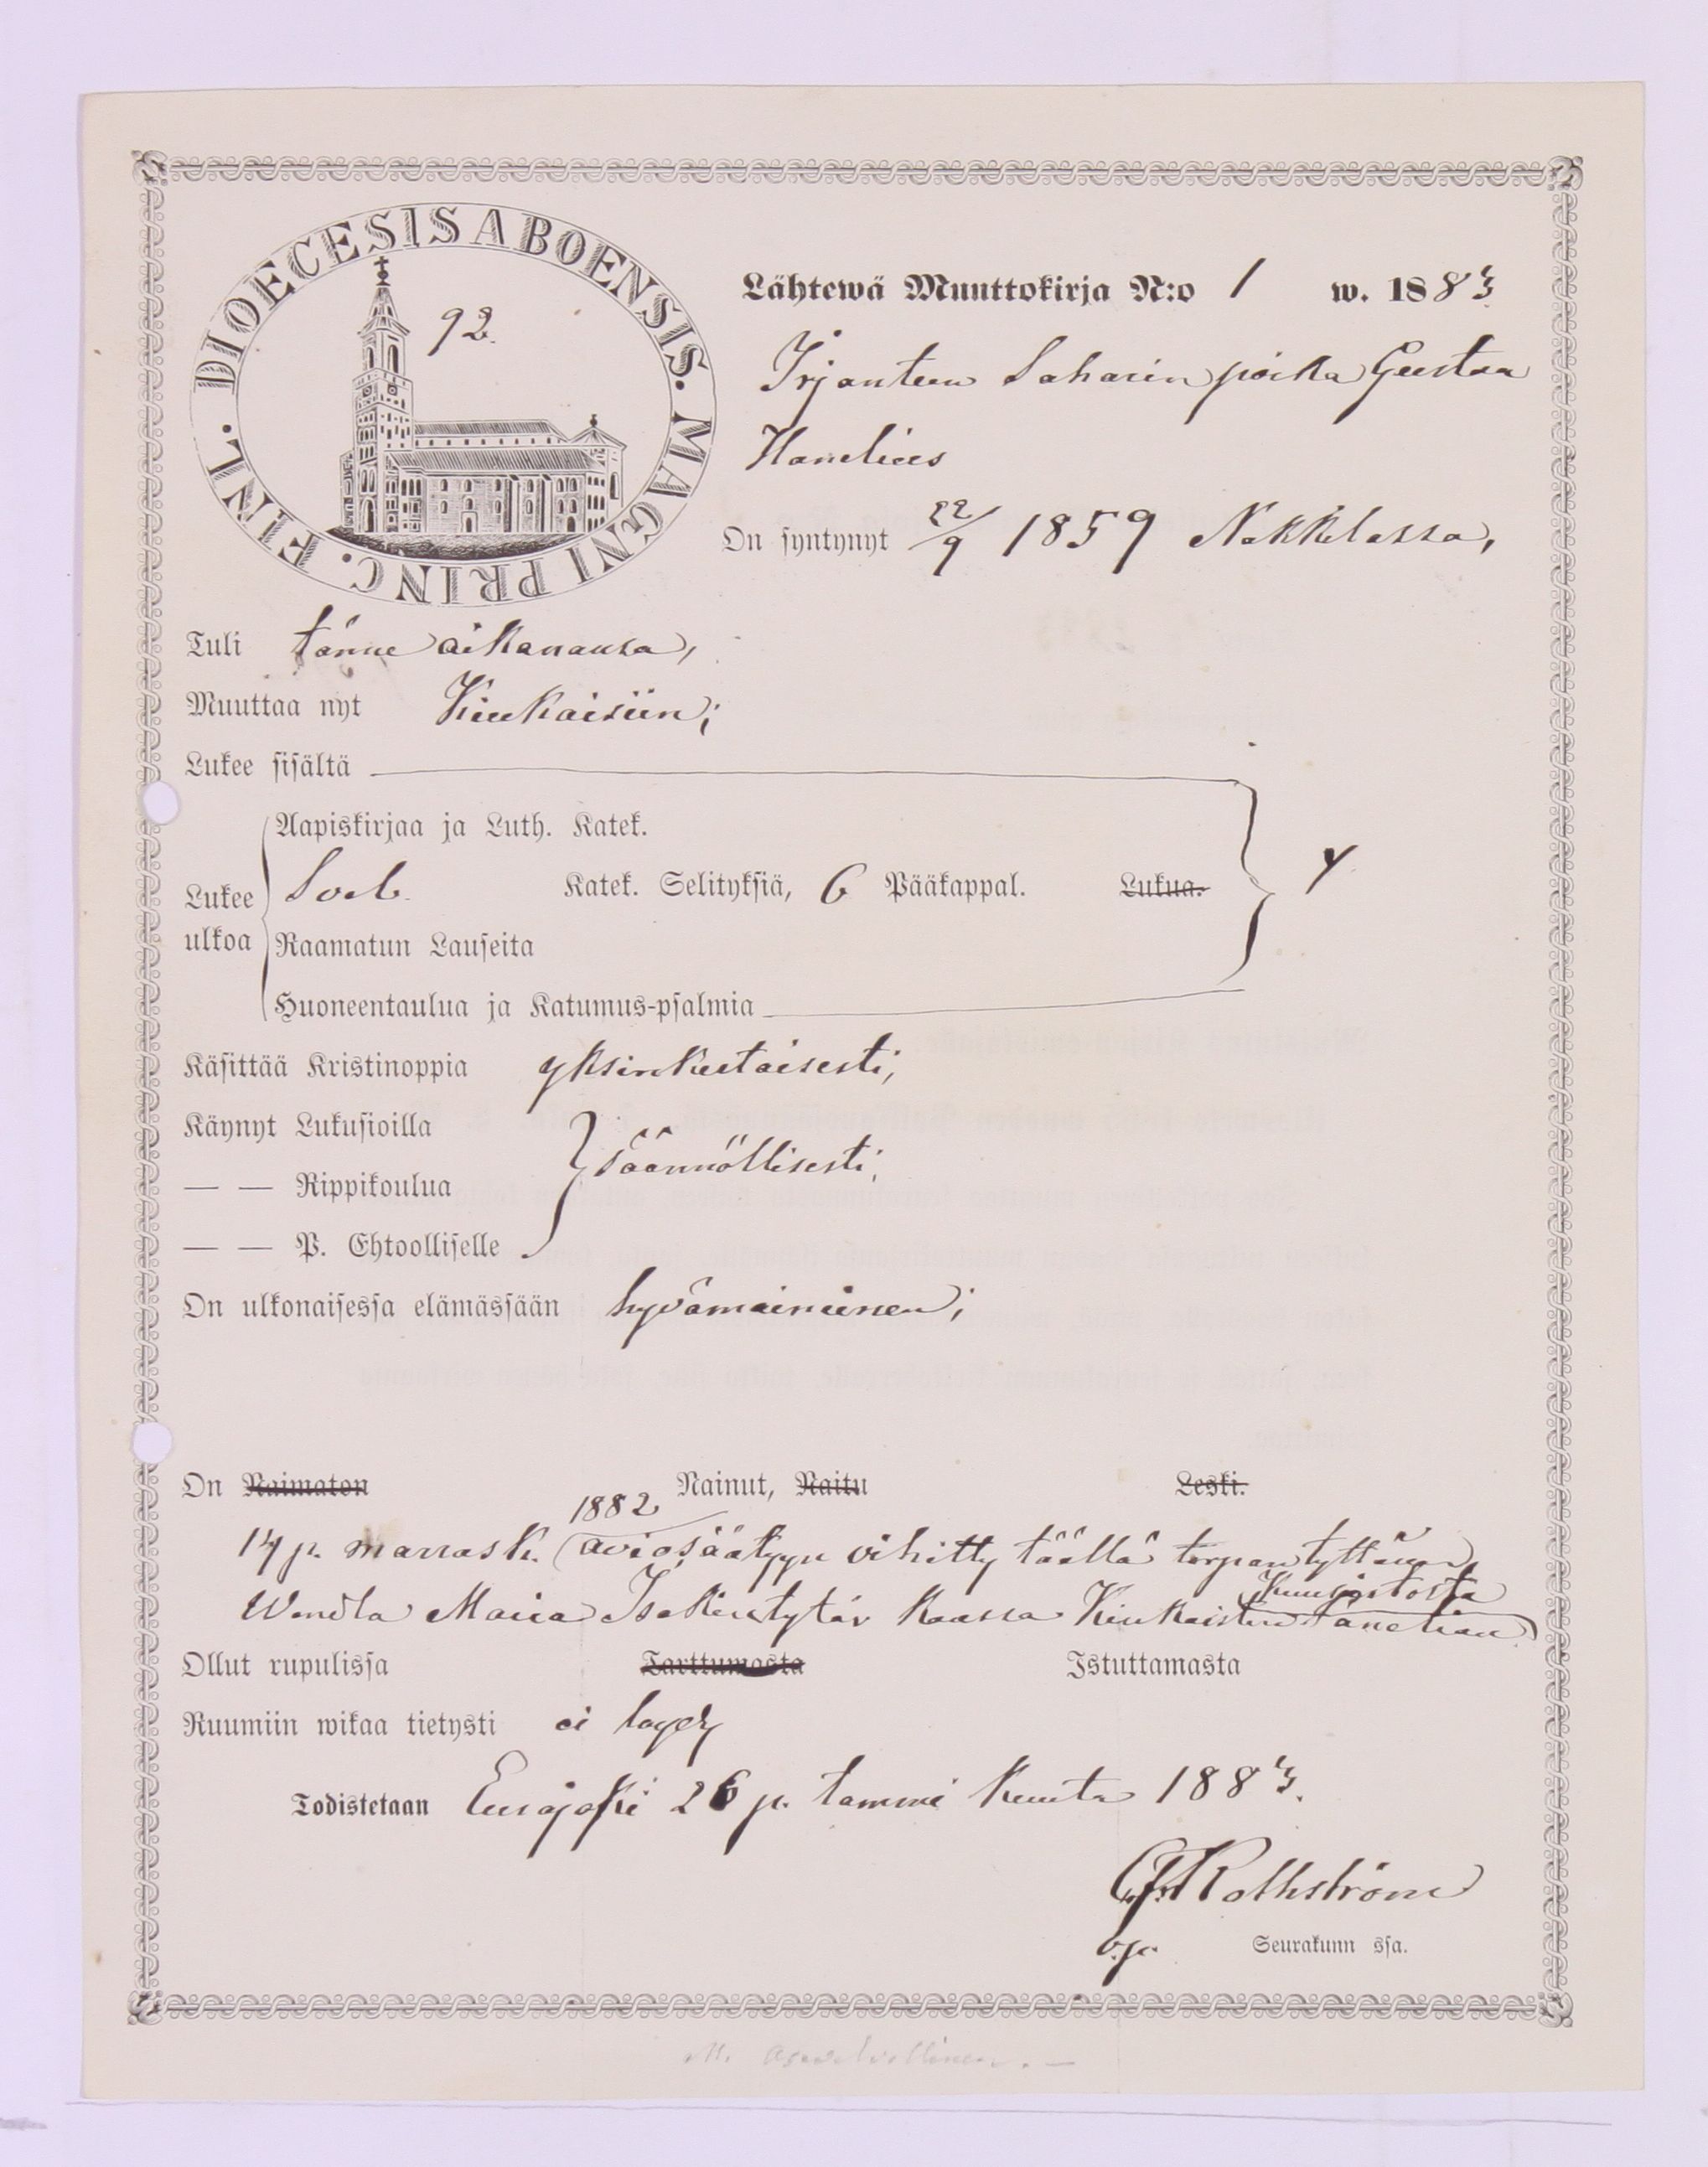 DIOECESIS ABOENSIS. MAGNI PRINC. FINL.
92.
Lähtewä Muuttokirja N:o 1 w. 1883
Irjanteen Saharin poika Gustaa
Hanelius
On syntynyt 22/9 1859 Nakkilassa,
Tuli tänne aikanansa,
Muuttaa nyt Kiukaisiin;
Lukee sisältä
Aapiskirjaa ja Luth. Katek.
Lukee ulkoa Katek. Selityksiä, 6 Pääkappal. Lukua.
Raamatun Lauseita
Huoneentaulua ja Katumus-psalmia
Käsittää Kristinoppia yksinkertaisesti,
Käynyt Lukusioilla
säännöllisesti,
— — Rippikoulua
— — P. Ehtoolliselle
On ulkonaisessa elämässään hyvämaininen;
On Naimaton Nainut, Naitu Leski.
1882
17 p. marrask. aviosäätyyn vihitty täällä torparintyttären
Wendla Maria Isakintytär kanssa Kiukaisten
Ollut rupulissa Tarttumasta Istuttamasta
Ruumiin wikaa tietysti ei löydy
Todistetaan Eurajoki 26 p. tammi kuuta 1883.
Rothström
Seurakunn ssa.